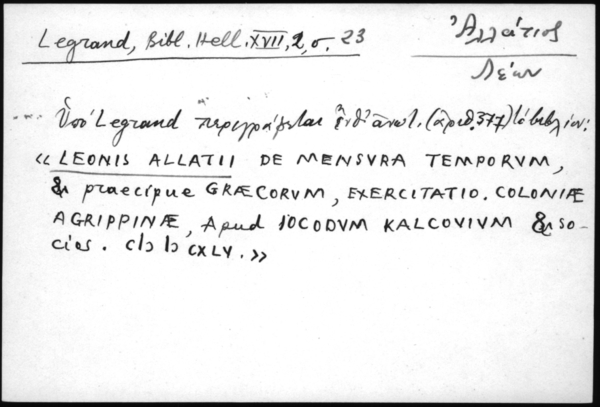 Legrand, Bibl. Hell. XVII, 2, σ. 23
Ἀλλάτιος
Λέων
... Ὑπὸ Legrand περιγράφεται ἐνθ' ἀνωτ. (ἀριθ. 377) τὸ βιβλίον:
« LEONIS ALLATII DE MENSVRA TEMPORVM,
& praecipue GRÆCORVM, EXERCITATIO. COLONIÆ
AGRIPPINÆ, Apud IOCODVM KALCOVIVM & so-
cios. cIɔ Iɔ CXLV. »